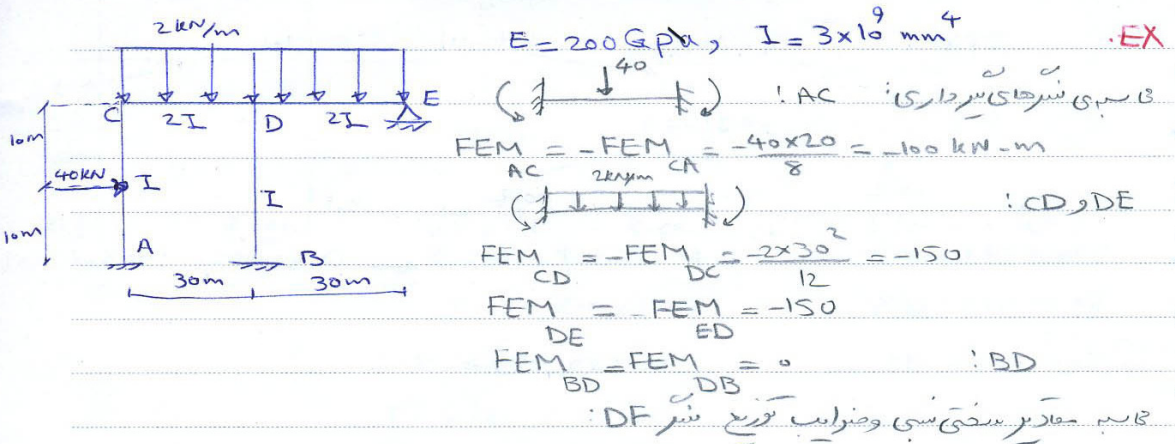 EX.
E = 200 GPa, I = 3×10⁹ mm⁴
2 kN/m
C 2I D 2I E
10m
40kN I I
10m
A B
30m 30m
محاسبه‌ی لنگرهای گیرداری: AC:
40
FEM_AC = -FEM_CA = -40×20/8 = -100 kN-m
CD و DE:
2kN/m
FEM_CD = -FEM_DC = -2×30²/12 = -150
FEM_DE = -FEM_ED = -150
BD:
FEM_BD = FEM_DB = 0
محاسبه مقادیر سختی نسبی و ضرایب توزیع لنگر DF: